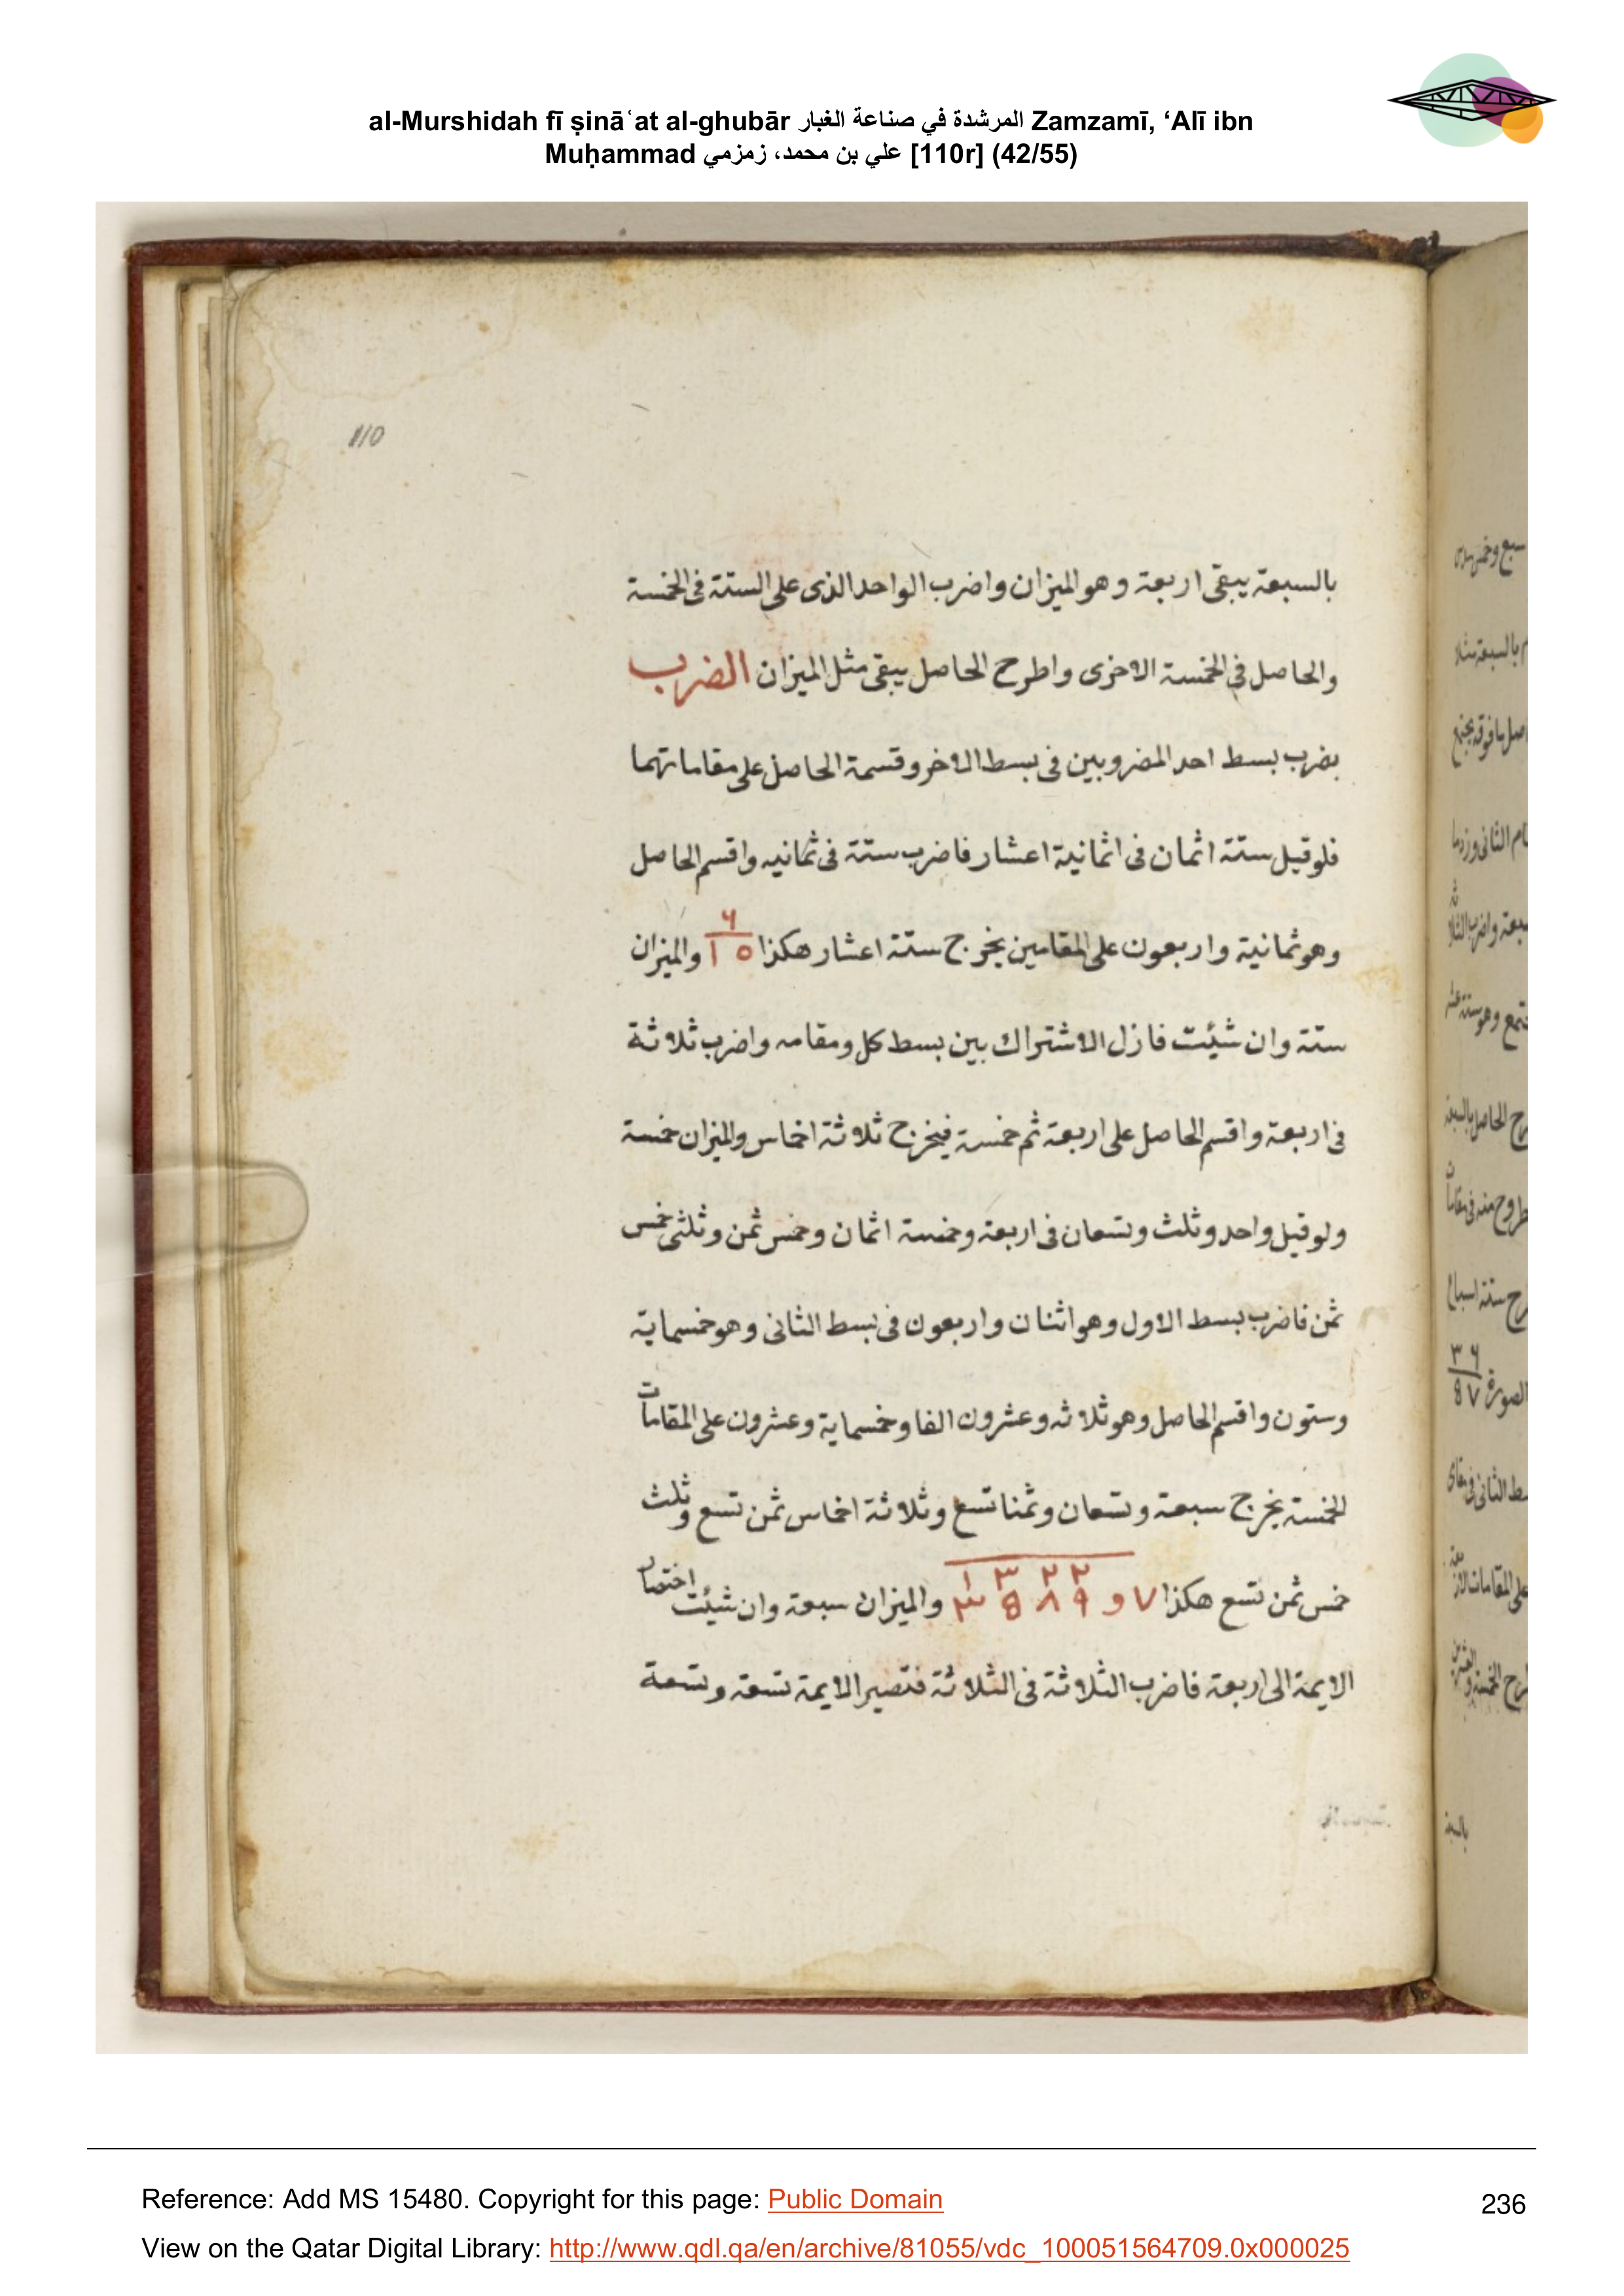 al-Murshidah fī ṣināʿat al-ghubār المرشدة في صناعة الغبار Zamzamī, ‘Alī ibn
Muḥammad علي بن محمد، زمزمي [110r] (42/55)
110
بالسبعة يبقى اربعة وهو الميزان واضرب الواحد الذى على الستة فى الخمسة
والحاصل فى الخمسة الاخرى واطرح الحاصل يبقى مثل الميزان الضرب
بضرب بسط احد المضروبين فى بسط الاخر وقسمة الحاصل على مقاماتهما
فلو قيل ستة اثمان فى اثمانية اعشار فاضرب ستة فى ثمانيه واقسم الحاصل
وهو ثمانية واربعون على المقامين يخرج ستة اعشار هكذا ٦ ١٥ والميزان
ستة وان شئت فازل الاشتراك بين بسط كل ومقامه واضرب ثلاثة
فى اربعة واقسم الحاصل على اربعة ثم خمسة فيخرج ثلاثة اخماس والميزان خمسة
ولو قيل واحد وثلث وتسعان فى اربعة وخمسة اثمان وخمس ثمن وثلثى خمس
ثمن فاضرب بسط الاول وهو اثنان واربعون فى بسط الثانى وهو خمسماية
وستون واقسم الحاصل وهو ثلاثه وعشرون الفا وخمسماية وعشرون على المقامات
الخمسة يخرج سبعة وتسعان وثمنا تسع وثلاثة اخماس ثمن تسع وثلث
خمس ثمن تسع هكذا ٧ و ١ ٣ ٢ ٢ ٣ 8 ٨ ٩ والميزان سبعة وان شئت اختصار
الايمة الى اربعة فاضرب الثلاثة فى الثلاثة فتصير الايمة تسعة وتسعة
Reference: Add MS 15480. Copyright for this page: Public Domain
236
View on the Qatar Digital Library: http://www.qdl.qa/en/archive/81055/vdc_100051564709.0x000025